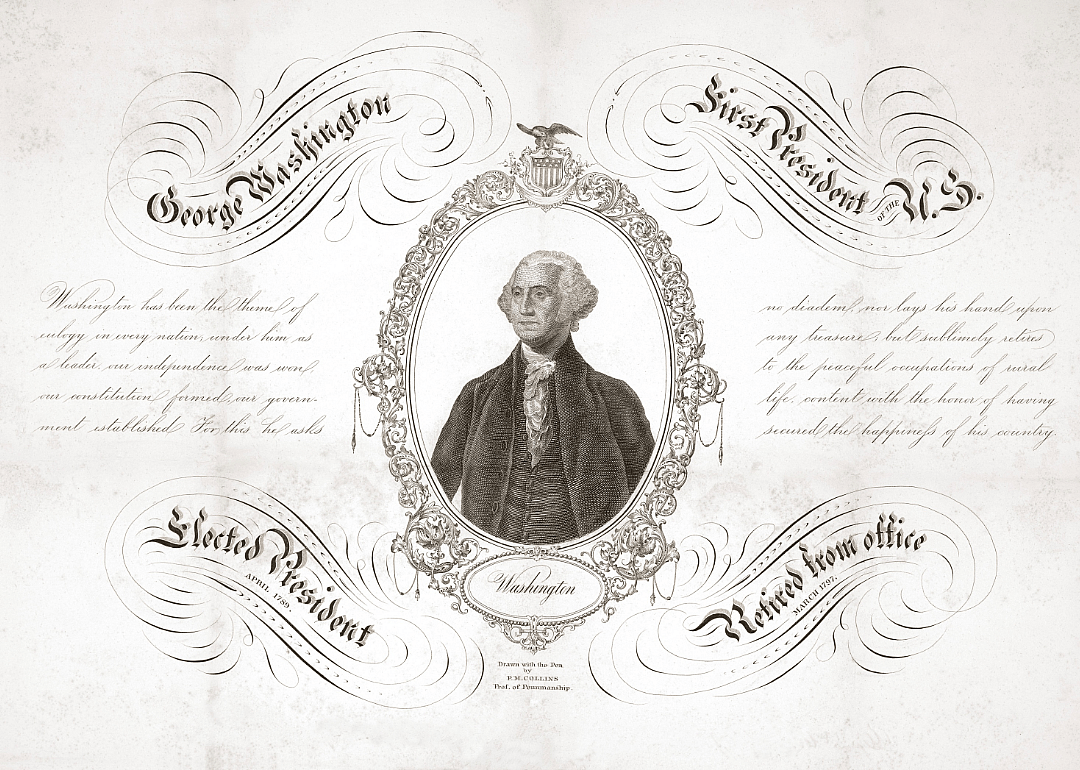 George Washington
First President OF THE U.S.
Washington has been the theme of
eulogy in every nation, under him as
a leader, our independence was won,
our constitution formed, our govern-
ment established For this he asks
no diadem, nor lays his hand upon
any treasure, but sublimely retires
to the peaceful occupations of rural
life, content with the honor of having
secured the happiness of his country.
Elected President
APRIL 1789.
Retired from office
MARCH 1797.
Washington
Drawn with the Pen
by
P.M. COLLINS
Prof. of Penmanship.